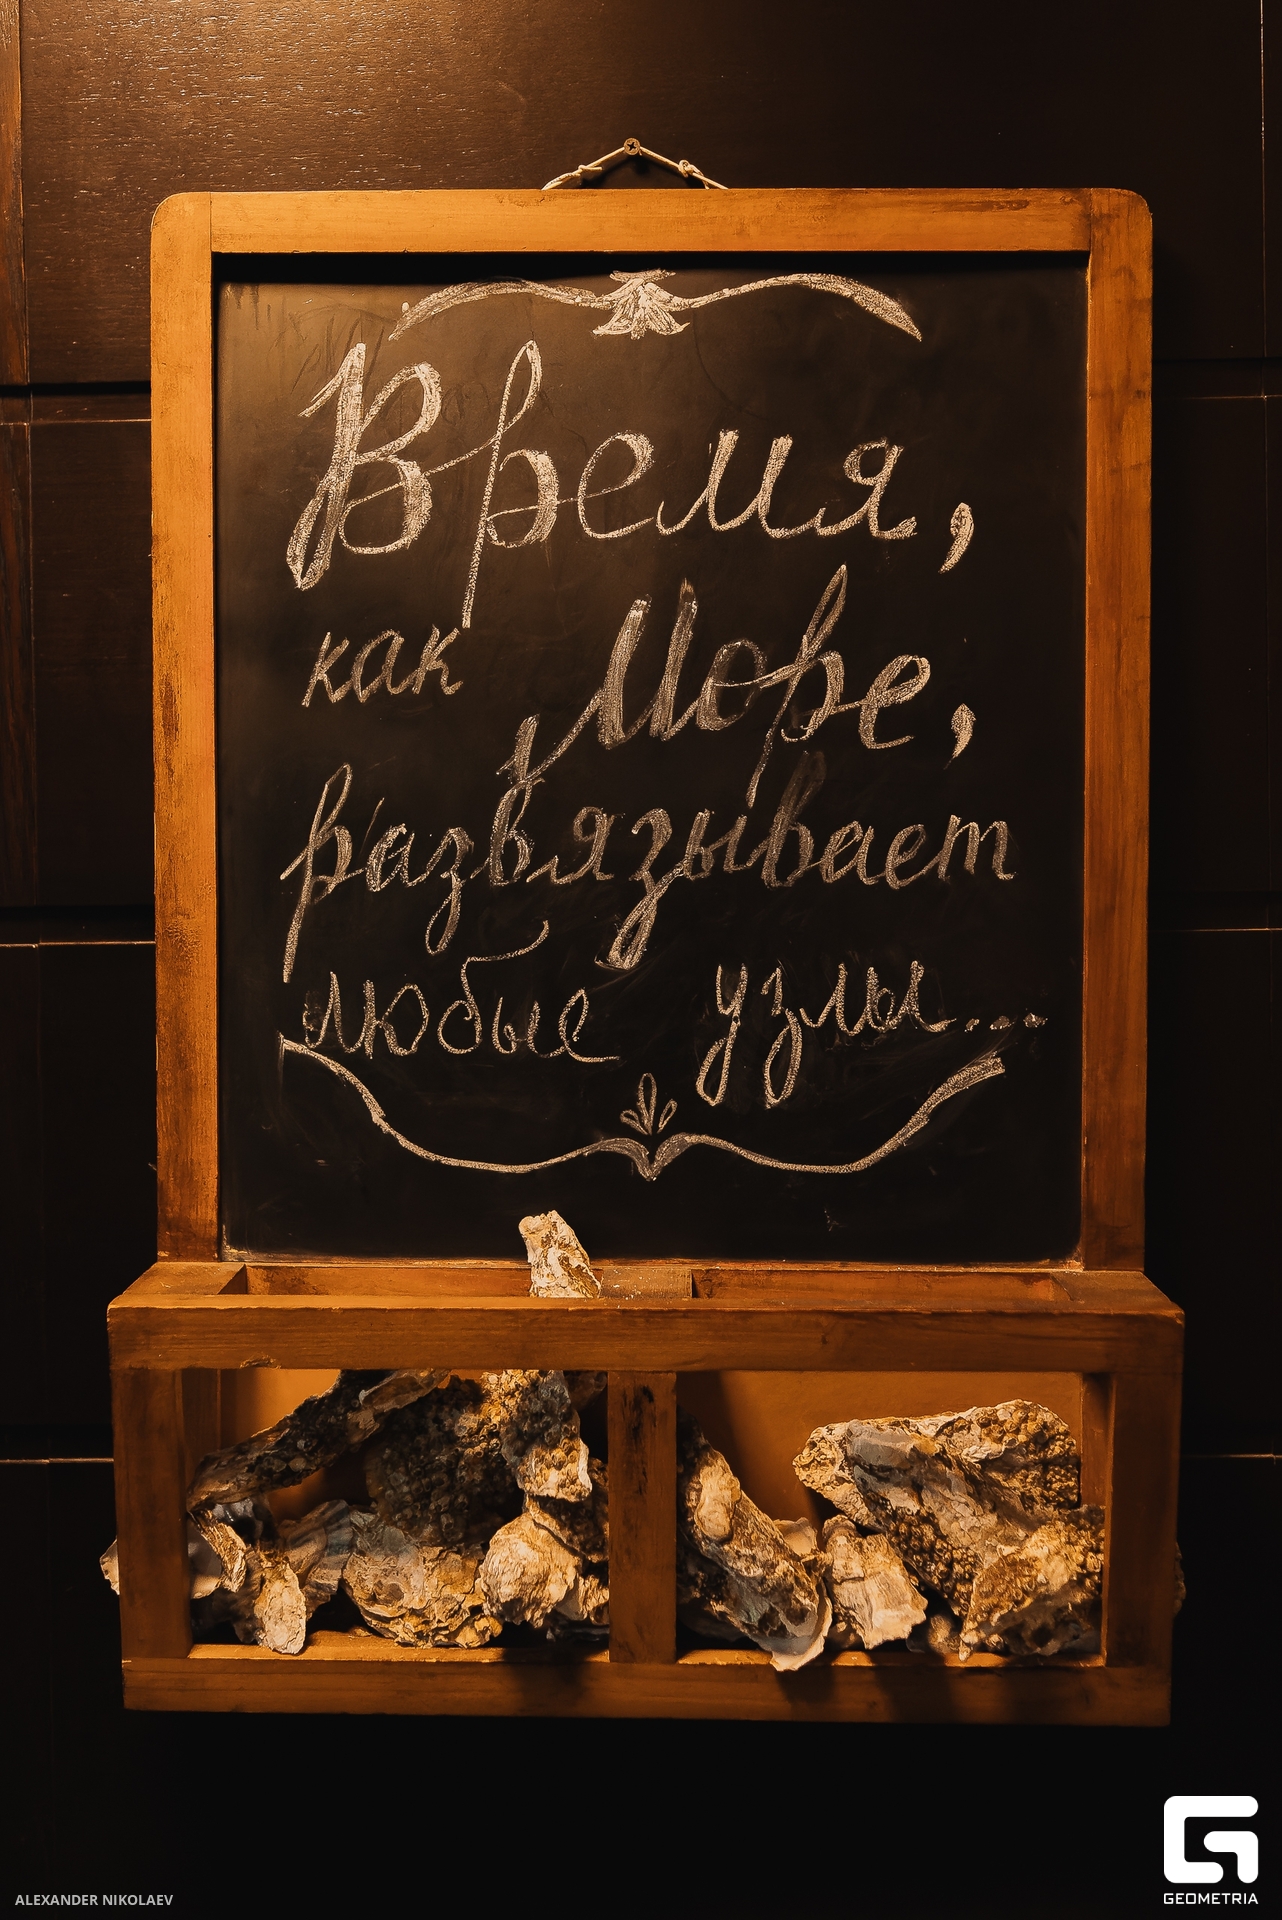 Время,
как Море,
развязывает
любые узлы...
ALEXANDER NIKOLAEV
GEOMETRIA